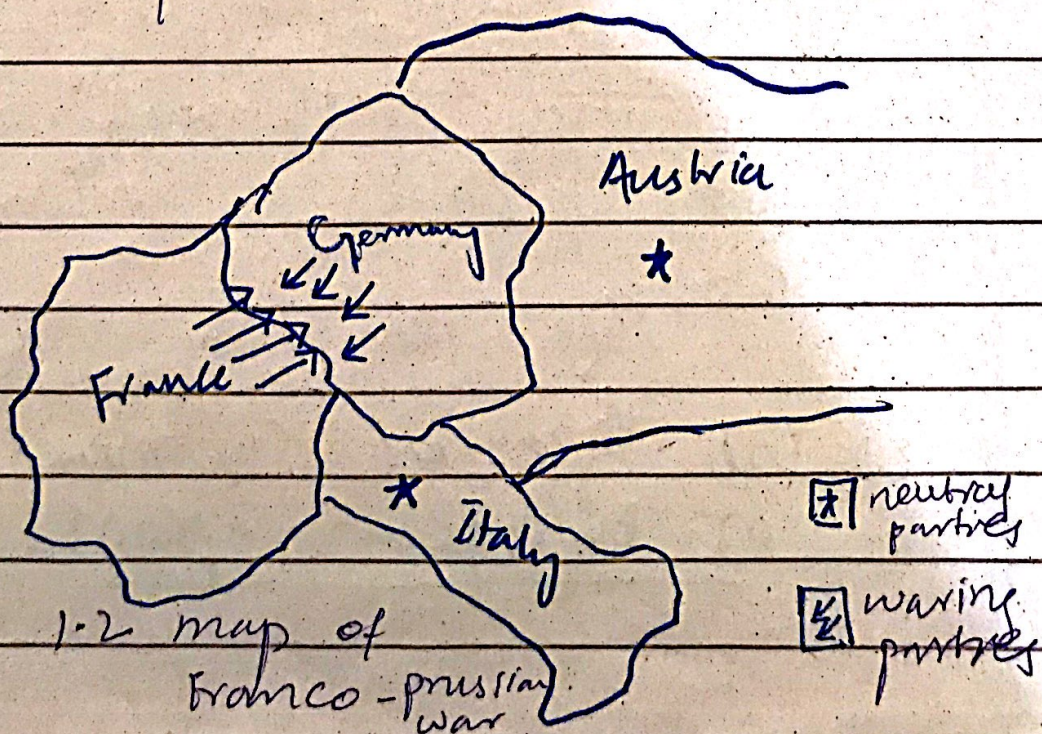 Austria
Germany
France
Italy
neutral
parties
waring
parties
1.2 map of
Franco-prussian
war